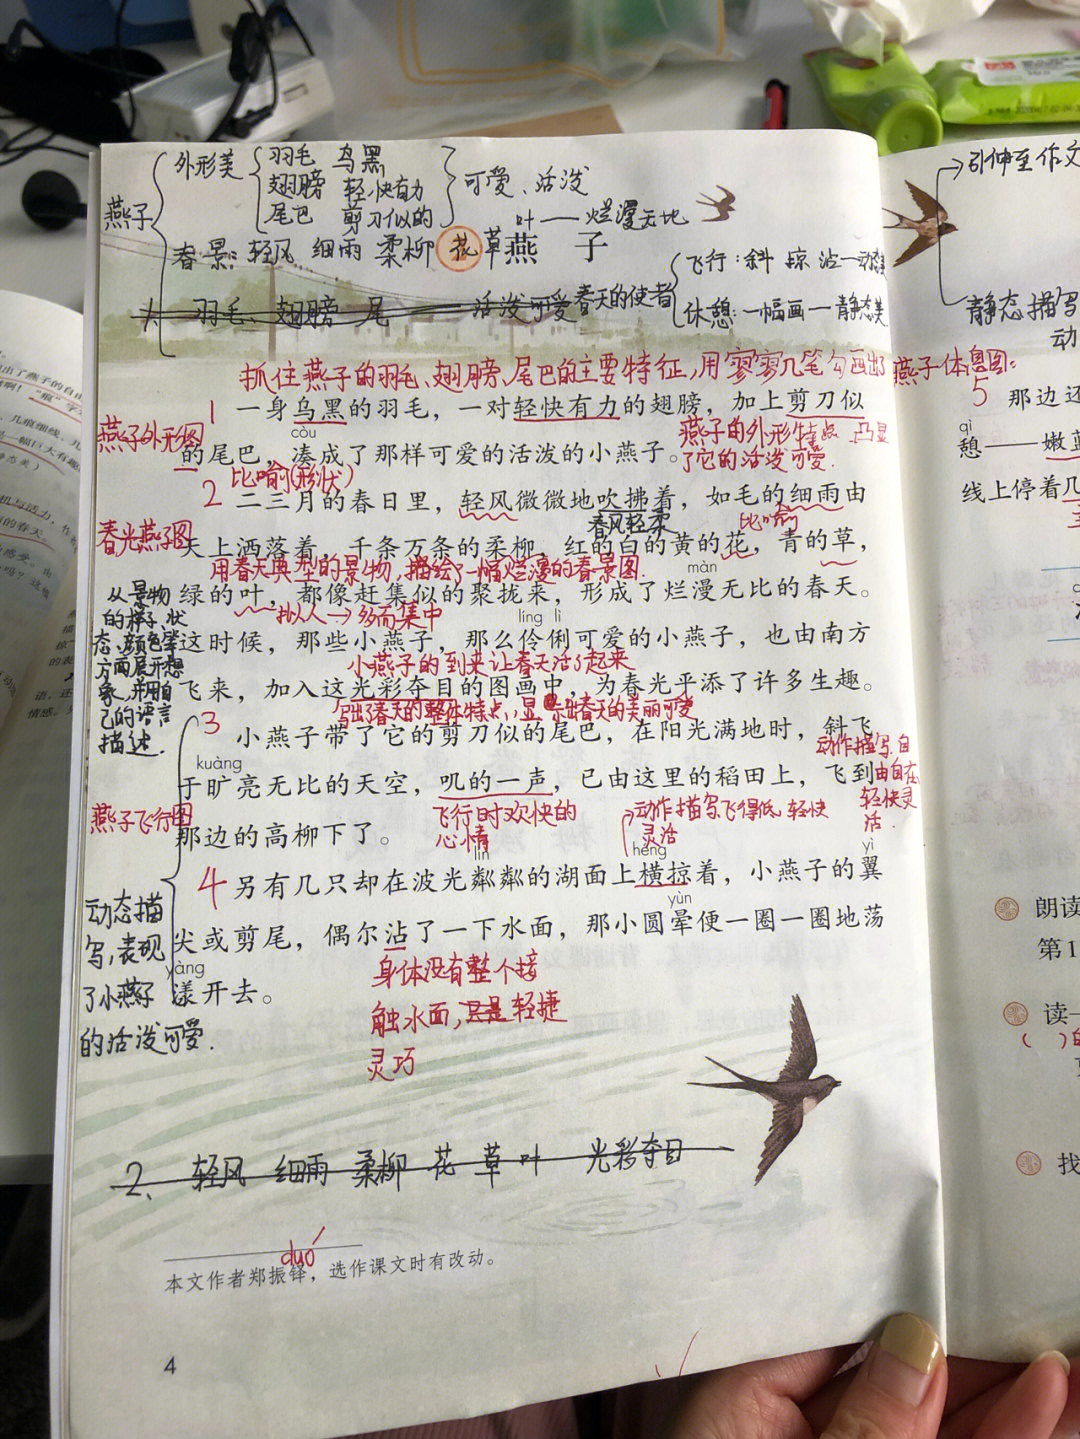 外形美 羽毛 乌黑
翅膀 轻快有力
尾巴 剪刀似的
可爱、活泼
燕子
叶——烂漫无比
春景：轻风 细雨 柔柳 花草
燕 子
飞行：斜 掠 沾—动态美
1、羽毛、翅膀 尾 —— 活泼可爱
春天的使者
休憩：一幅画—静态美
引伸至作文
静态描写
动
抓住燕子的羽毛、翅膀、尾巴的主要特征，用寥寥几笔勾画出了
燕子外形图
1 一身乌黑的羽毛，一对轻快有力的翅膀，加上剪刀似
còu
的尾巴，凑成了那样可爱的活泼的小燕子。
燕子的外形特点，凸显
了它的活泼可爱.
比喻(形状)
春光燕子图
2 二三月的春日里，轻风微微地吹拂着，如毛的细雨由
春风轻柔
比喻
天上洒落着，千条万条的柔柳，红的白的黄的花，青的草，
用春天典型的景物，描绘了一幅烂漫的春景图.
màn
绿的叶，都像赶集似的聚拢来，形成了烂漫无比的春天。
拟人→多而集中
líng lì
这时候，那些小燕子，那么伶俐可爱的小燕子，也由南方
小燕子的到来让春天活了起来
飞来，加入这光彩夺目的图画中，为春光平添了许多生趣。
写出了春天的整体特点，显示出春天的美丽可爱
从景物
的样子、状
态、颜色等
方面展开想
象，并用自
己的语言
描述.
3 小燕子带了它的剪刀似的尾巴，在阳光满地时，斜飞
动作描写，自
由自在
轻快灵
活.
kuàng
于旷亮无比的天空，叽的一声，已由这里的稻田上，飞到
燕子飞行图
飞行时欢快的
心情
动作描写，飞得低，轻快
灵活
那边的高柳下了。
lín
héng
yì
4 另有几只却在波光粼粼的湖面上横掠着，小燕子的翼
yùn
尖或剪尾，偶尔沾了一下水面，那小圆晕便一圈一圈地荡
yàng
漾开去。
动态描
写，表现
了小燕子
的活泼可爱.
身体没有整个接
触水面，只是轻捷
灵巧
2、轻风 细雨 柔柳 花 草 叶 光彩夺目
duó
本文作者郑振铎，选作课文时有改动。
4
燕子休憩图：
5 那边还
qì
憩——嫩蓝
线上停着几
朗读
第1
读一
( )的
找